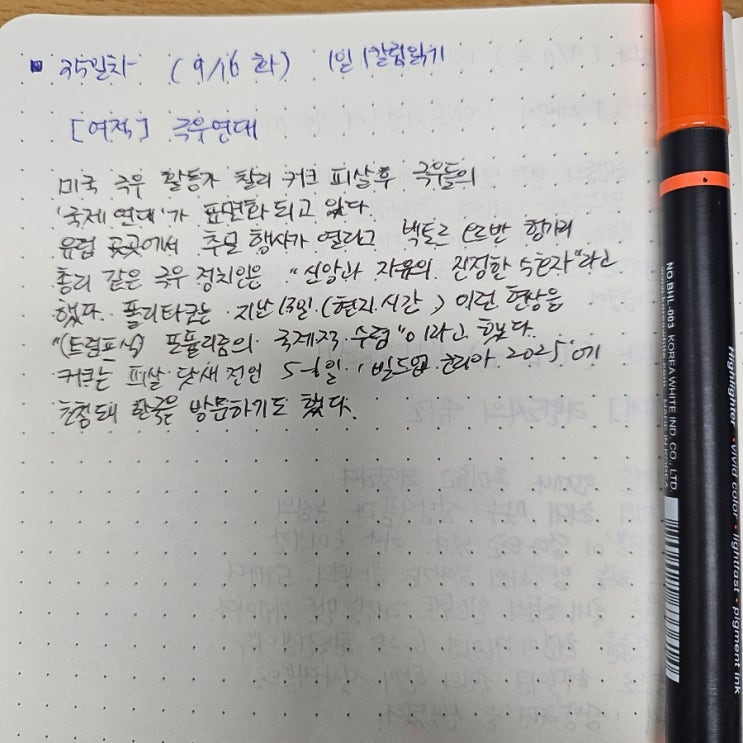 35일차 (9/16 화) 1일 1칼럼읽기
[여적] 극우연대
미국 극우 활동가 찰리 커크 피살 후 극우들의
'국제 연대'가 표면화되고 있다.
유럽 곳곳에서 추모 행사가 열리고 빅토르 오르반 헝가리
총리 같은 극우 정치인은 "신앙과 자유의 진정한 수호자"라고
했다. 폴리티코는 지난 13일 (현지 시간) 이런 현상을
"(트럼프식) 포퓰리즘의 국제적 수렴"이라고 했다.
커크는 피살 닷새 전인 5-6일 '빌드업 코리아 2025'에
초청돼 한국을 방문하기도 했다.
NO.BHL-003 KOREA WHITE IND. CO., LTD.
Highlighter • vivid color • lightfast • pigment ink